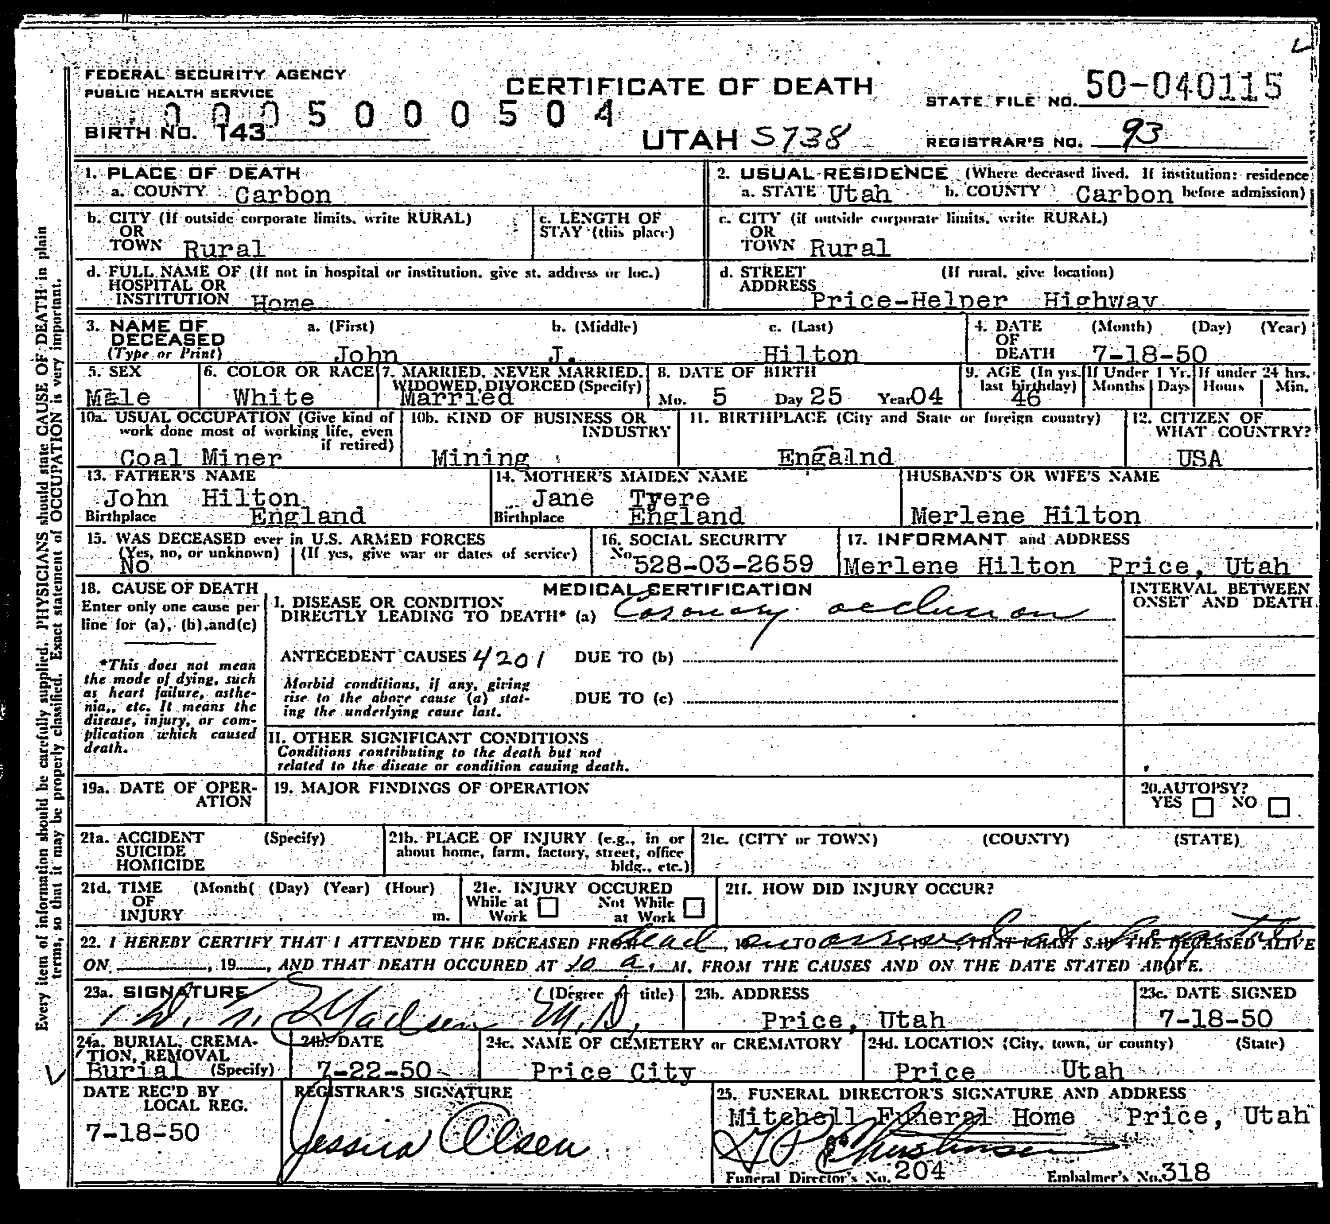 FEDERAL SECURITY AGENCY
PUBLIC HEALTH SERVICE
0005000504
BIRTH NO. 143
CERTIFICATE OF DEATH
UTAH S738
STATE FILE NO. 50-040115
REGISTRAR'S NO. 93
1. PLACE OF DEATH
a. COUNTY Carbon
2. USUAL RESIDENCE (Where deceased lived. If institution: residence before admission)
a. STATE Utah b. COUNTY Carbon
b. CITY (If outside corporate limits, write RURAL)
OR
TOWN Rural
c. LENGTH OF
STAY (this place)
c. CITY (if outside corporate limits, write RURAL)
OR
TOWN Rural
d. FULL NAME OF (If not in hospital or institution, give st. address or loc.)
HOSPITAL OR
INSTITUTION Home
d. STREET (If rural, give location)
ADDRESS
Price-Helper Highway
3. NAME OF DECEASED
(Type or Print)
a. (First) b. (Middle) c. (Last)
John J. Hilton
4. DATE OF DEATH (Month) (Day) (Year)
7-18-50
5. SEX
Male
6. COLOR OR RACE
White
7. MARRIED, NEVER MARRIED,
WIDOWED, DIVORCED (Specify)
Married
8. DATE OF BIRTH
Mo. 5 Day 25 Year 04
9. AGE (In yrs. last birthday)
46
If Under 1 Yr.
Months Days
If under 24 hrs.
Hours Min.
10a. USUAL OCCUPATION (Give kind of
work done most of working life, even
if retired)
Coal Miner
10b. KIND OF BUSINESS OR
INDUSTRY
Mining
11. BIRTHPLACE (City and State or foreign country)
Engalnd
12. CITIZEN OF
WHAT COUNTRY?
USA
13. FATHER'S NAME
John Hilton
Birthplace England
14. MOTHER'S MAIDEN NAME
Jane Tyere
Birthplace England
HUSBAND'S OR WIFE'S NAME
Merlene Hilton
15. WAS DECEASED ever in U.S. ARMED FORCES
(Yes, no, or unknown) (If yes, give war or dates of service)
No
16. SOCIAL SECURITY
No. 528-03-2659
17. INFORMANT and ADDRESS
Merlene Hilton Price, Utah
18. CAUSE OF DEATH
Enter only one cause per
line for (a), (b), and (c)
*This does not mean
the mode of dying, such
as heart failure, asthe-
nia, etc. It means the
disease, injury, or com-
plication which caused
death.
MEDICAL CERTIFICATION
I. DISEASE OR CONDITION
DIRECTLY LEADING TO DEATH* (a) Coronary occlusion
ANTECEDENT CAUSES 4201 DUE TO (b)
Morbid conditions, if any, giving
rise to the above cause (a) stat-
ing the underlying cause last.
DUE TO (c)
II. OTHER SIGNIFICANT CONDITIONS
Conditions contributing to the death but not
related to the disease or condition causing death.
INTERVAL BETWEEN
ONSET AND DEATH
19a. DATE OF OPER-
ATION
19. MAJOR FINDINGS OF OPERATION
20. AUTOPSY?
YES NO
21a. ACCIDENT (Specify)
SUICIDE
HOMICIDE
21b. PLACE OF INJURY (e.g., in or
about home, farm, factory, street, office
bldg., etc.)
21c. (CITY or TOWN) (COUNTY) (STATE)
21d. TIME (Month( (Day) (Year) (Hour)
OF
INJURY m.
21e. INJURY OCCURED
While at Work
Not While at Work
21f. HOW DID INJURY OCCUR?
22. I HEREBY CERTIFY THAT I ATTENDED THE DECEASED FROM dead , 19 on TO arrival at hospital, THAT I LAST SAW THE DECEASED ALIVE
ON , 19 , AND THAT DEATH OCCURED AT 10 a. M. FROM THE CAUSES AND ON THE DATE STATED ABOVE.
23a. SIGNATURE (Degree or title)
M.D.
23b. ADDRESS
Price, Utah
23c. DATE SIGNED
7-18-50
24a. BURIAL, CREMA-
TION, REMOVAL
Burial (Specify)
24b. DATE
7-22-50
24c. NAME OF CEMETERY or CREMATORY
Price City
24d. LOCATION (City, town, or county) (State)
Price Utah
DATE REC'D BY
LOCAL REG.
7-18-50
REGISTRAR'S SIGNATURE
Jessica Olsen
25. FUNERAL DIRECTOR'S SIGNATURE AND ADDRESS
Mitchell Funeral Home Price, Utah
Funeral Director's No. 204 Embalmer's No. 318
Every item of information should be carefully supplied. PHYSICIANS should state CAUSE OF DEATH in plain
terms, so that it may be properly classified. Exact statement of OCCUPATION is very important.